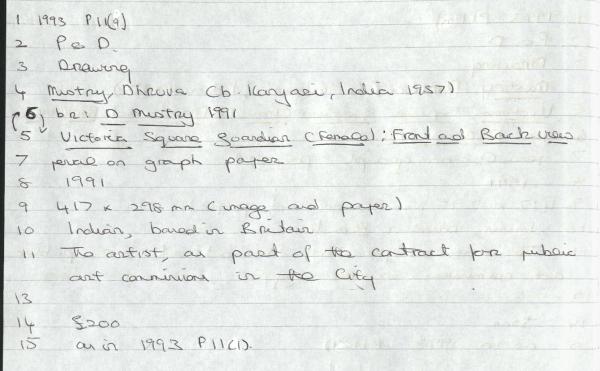 1 1993 P11(9)
2 P & D.
3 Drawing
4 Mistry, Dhruva (b. Kanjari, India 1957)
6 br: D Mistry 1991
5 Victoria Square Guardian (Female): Front and Back view
7 pencil on graph paper
8 1991
9 417 x 298 mm (image and paper)
10 Indian, based in Britain
11 The artist, as part of the contract for public
art commissions in the City
13
14 £200
15 as in 1993 P11(1).